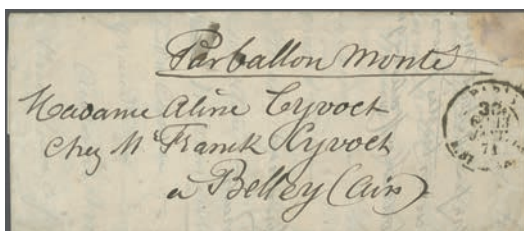 Par ballon Monté
Madame Aline Cyvoct
Chez Mr Franck Cyvoct
à Belley (Ain)
PARIS
71